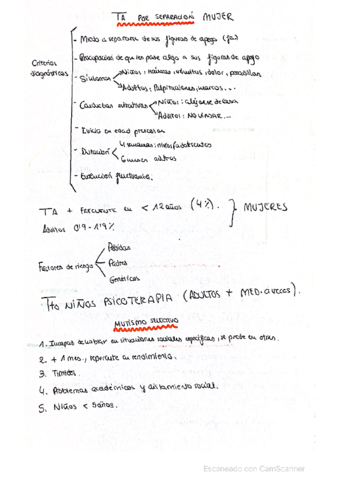 TA POR SEPARACIÓN MUJER
- Miedo a separarse de sus figuras de apego
- Preocupación de que les pase algo a sus figuras de apego
Criterios diagnósticos
- Síntomas
Niños: náuseas, vómitos, dolor, pesadillas
Adultos: Palpitaciones, mareos...
- Conductas evitativas
Niños: alejarse de casa
Adultos: No viajar...
- Inicio en edad preescolar
- Duración
4 semanas: niños/adolescentes
6 meses adultos
- Evolución fluctuante.
TA + FRECUENTE EN < 12 años (4%) } MUJERES
Adultos 0'9 - 1'9%
Factores de riesgo
Pérdidas
Padres
Genéticos
Tto NIÑOS PSICOTERAPIA (ADULTOS + MED. A VECES).
MUTISMO SELECTIVO
1. Incapaz de hablar en situaciones sociales específicas, si puede en otras.
2. + 1 mes, repercute en rendimiento.
3. Tímidos.
4. Problemas académicos y aislamiento social.
5. Niños < 5 años.
Escaneado con CamScanner